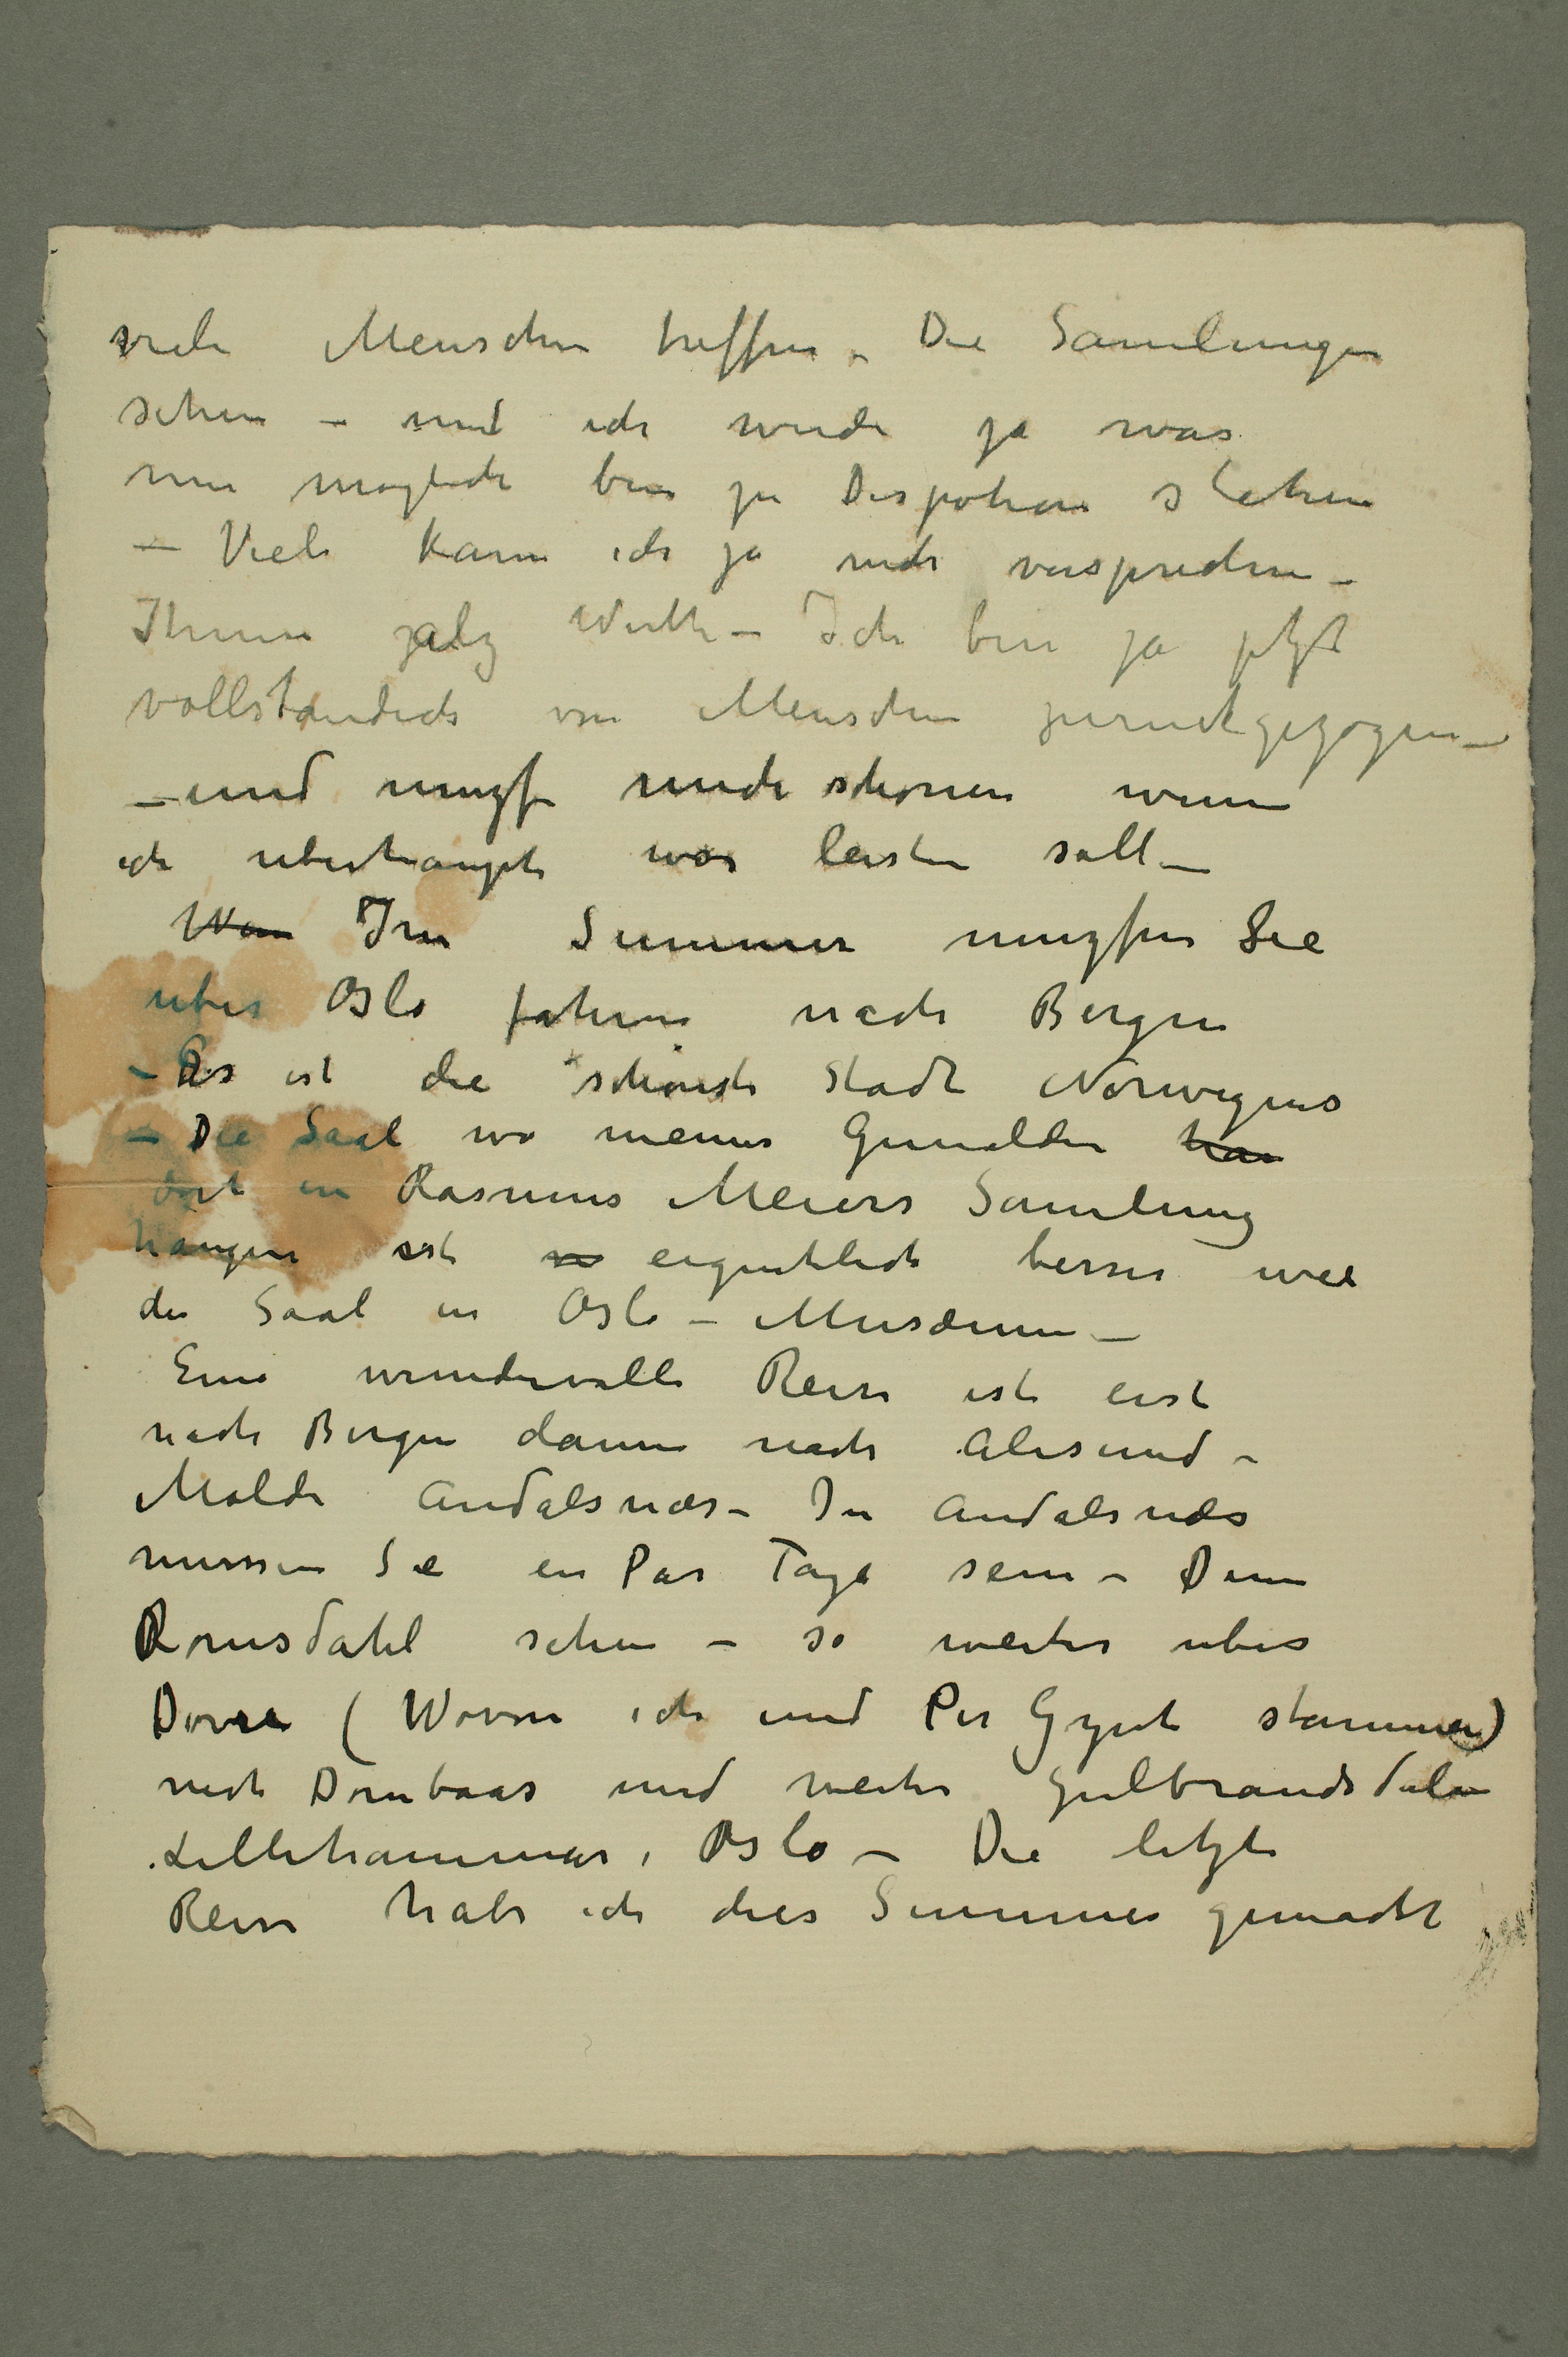 viele Menschen treffen – Die Samlungen
sehen – und ich werde ja was
mir moglich bin zu Dispotion stehen
– Viele kann ich ja nich versprechen –
Ihnen Ich bin ja jetzt
vollstandich von Menschen zuruckgezogen –
– und muzf mich schonen wenn
ich uberhaupt was leisten soll –
Im Summer muzfen Sie
uber Oslo fahren nach Bergen
– Das ist die schönste Stadt Norwegens
– Die Saal wo meine Gemalden
dort in Rasmus Meiers Samlung
hangen ist eigentlich besser wie
der Saal in Oslo – Musæum –
Eine wundervolle Reise ist erst
nach Bergen dann nach Alesund –
Molde Andalsnæs – In Andalsnæs
mussen Sie ein Par Tage sein – Denn
Romsdahl sehen – so weiter uber
Dovre (Wovon ich und Per Gynt stammen)
nach Dombaas und weiter Gulbrandsdalen
Lillehammer, Oslo – Die letzte
Reise habe ich dies Summer gemacht